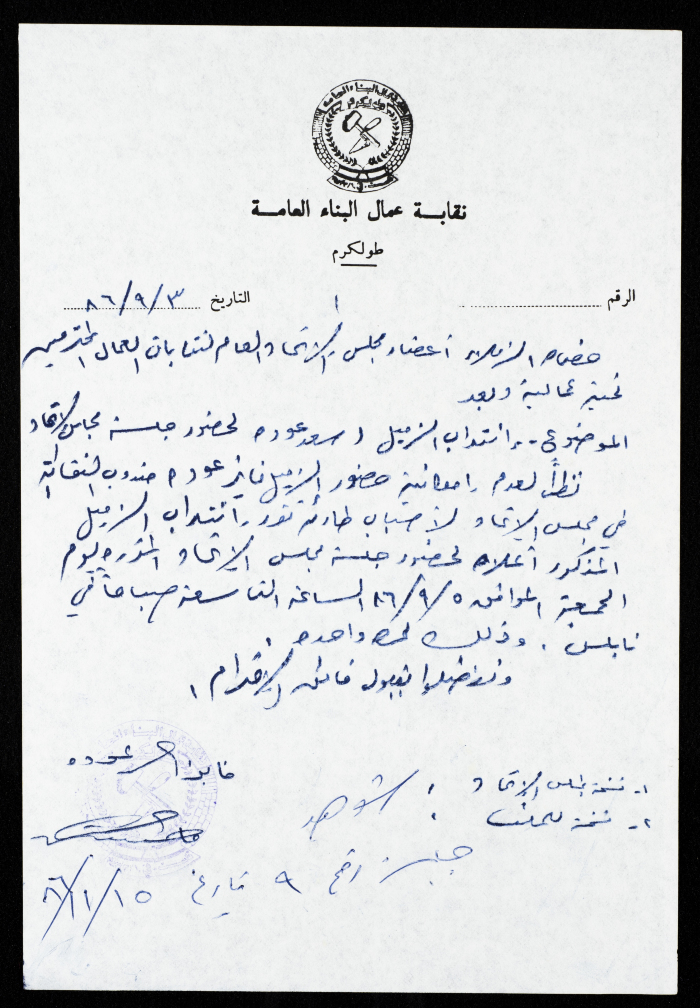 نقابة عمال البناء العامة
طولكرم
الرقم
التاريخ ٨٦/٩/٣
حضرة الزملاء أعضاء مجلس الاتحاد العام لنقابات العمال المحترمين
تحية عمالية وبعد
الموضوع :- انتداب الزميل اسعد عوده لحضور جلسة مجلس الاتحاد
نظراً لعدم امكانية حضور الزميل فايز عوده مندوب النقابة
في مجلس الاتحاد لأسباب طارئة تقرر انتداب الزميل
المذكور أعلاه لحضور جلسة مجلس الاتحاد المقرره يوم
الجمعة الموافق ٨٦/٩/٥ الساعة التاسعة صباحاً في
نابلس . وذلك لمره واحده .
وتفضلوا بقبول فائق الاحترام ،
عوده
١- نسخة لمجلس الاتحاد
٢- نسخة للملف
شوهد
جلسة رقم ٩ تاريخ ٨٦/١١/١٥